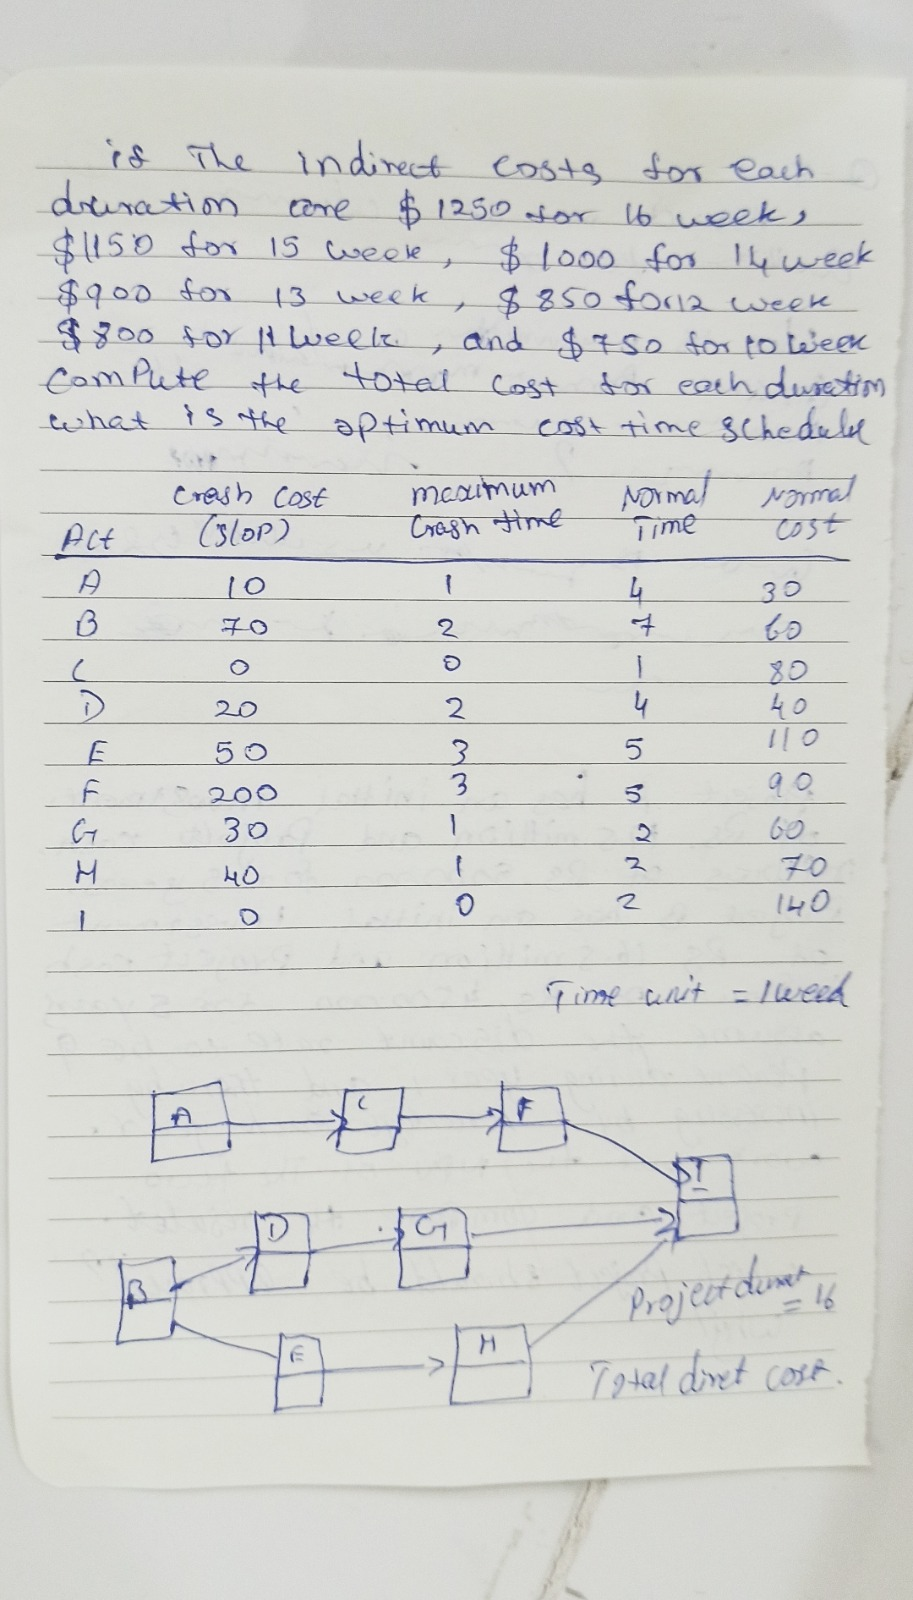 if The indirect costs for each
druration are $1250 for 16 week,
$1150 for 15 week, $1000 for 14 week
$900 for 13 week, $850 for 12 week
$800 for 11 week, and $750 for 10 week
Compute the total cost for each duration
what is the optimum cost time schedule
Act Crash Cost (SlOP) maximum Crash time Normal Time Normal cost
A 10 1 4 30
B 70 2 7 60
C 0 0 1 80
D 20 2 4 40
E 50 3 5 110
F 200 3 5 90
G 30 1 2 60
H 40 1 2 70
I 0 0 2 140
Time unit = 1 week
A C F
I
D G
B
Project durat
= 16
E H
Total diret cost.